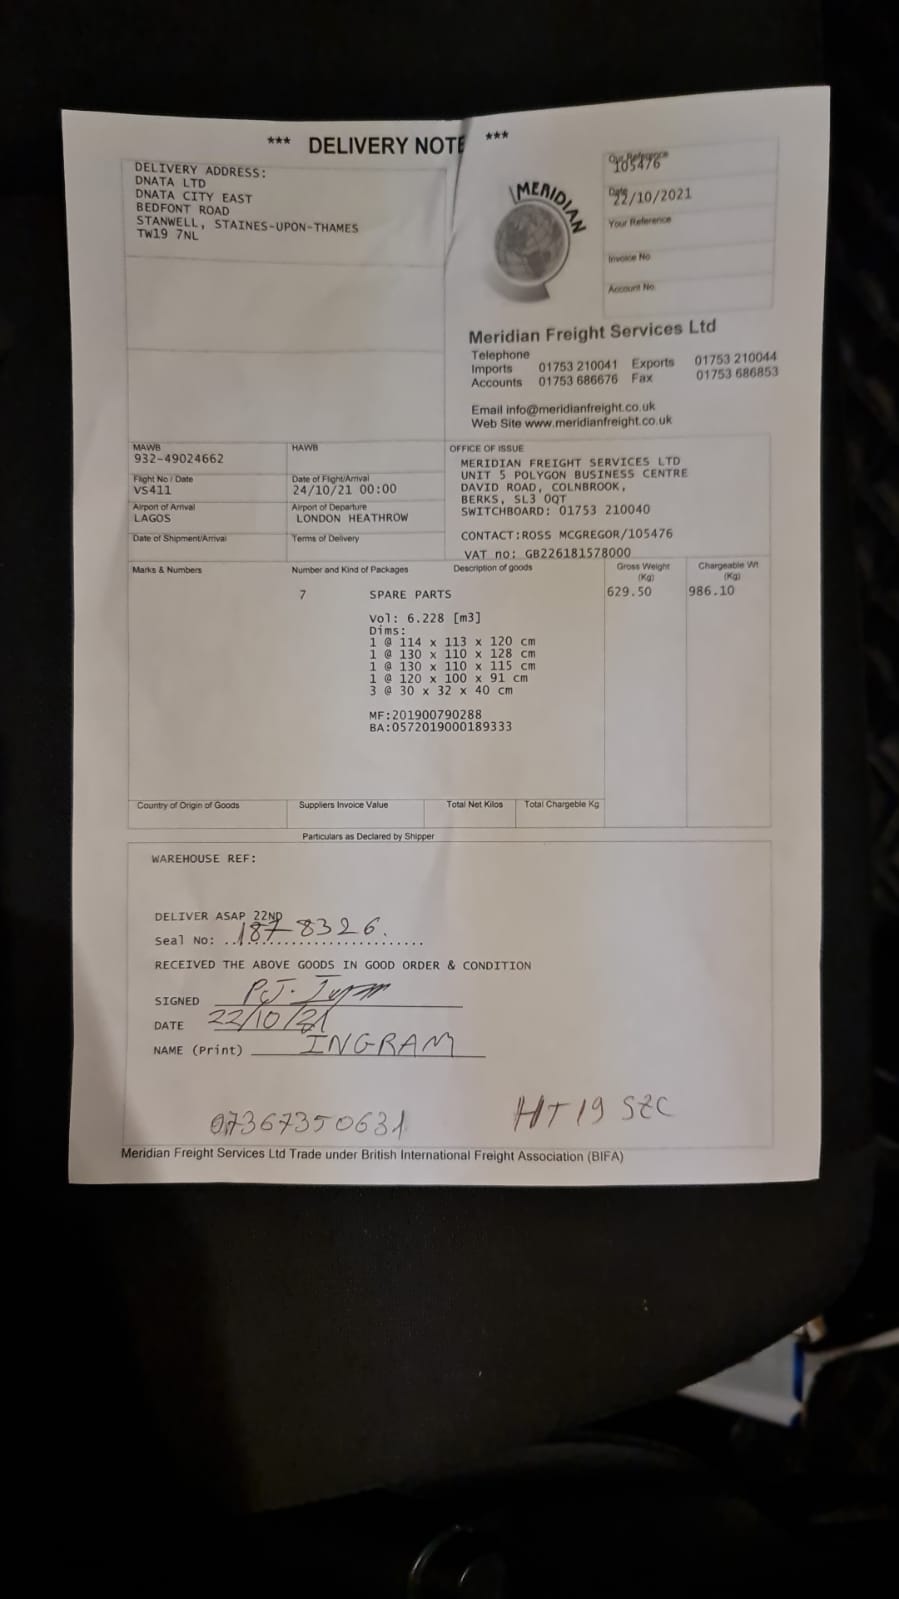 *** DELIVERY NOTE ***
DELIVERY ADDRESS:
DNATA LTD
DNATA CITY EAST
BEDFONT ROAD
STANWELL, STAINES-UPON-THAMES
TW19 7NL
MERIDIAN
Our Reference
105476
Date
22/10/2021
Your Reference
Invoice No
Account No.
Meridian Freight Services Ltd
Telephone
Imports 01753 210041 Exports 01753 210044
Accounts 01753 686676 Fax 01753 686853
Email info@meridianfreight.co.uk
Web Site www.meridianfreight.co.uk
MAWB HAWB
932-49024662
Flight No / Date Date of Flight/Arrival
VS411 24/10/21 00:00
Airport of Arrival Airport of Departure
LAGOS LONDON HEATHROW
Date of Shipment/Arrival Terms of Delivery
OFFICE OF ISSUE
MERIDIAN FREIGHT SERVICES LTD
UNIT 5 POLYGON BUSINESS CENTRE
DAVID ROAD, COLNBROOK,
BERKS, SL3 0QT
SWITCHBOARD: 01753 210040
CONTACT:ROSS MCGREGOR/105476
VAT no: GB226181578000
Marks & Numbers Number and Kind of Packages Description of goods Gross Weight (Kg) Chargeable Wt (Kg)
7 SPARE PARTS 629.50 986.10
Vol: 6.228 [m3]
Dims:
1 @ 114 x 113 x 120 cm
1 @ 130 x 110 x 128 cm
1 @ 130 x 110 x 115 cm
1 @ 120 x 100 x 91 cm
3 @ 30 x 32 x 40 cm
MF:201900790288
BA:0572019000189333
Country of Origin of Goods Suppliers Invoice Value Total Net Kilos Total Chargeble Kg
Particulars as Declared by Shipper
WAREHOUSE REF:
DELIVER ASAP 22ND
Seal No: 1878326.
RECEIVED THE ABOVE GOODS IN GOOD ORDER & CONDITION
SIGNED
DATE 22/10/21
NAME (Print) INGRAM
07367350631 HT19 SZC
Meridian Freight Services Ltd Trade under British International Freight Association (BIFA)